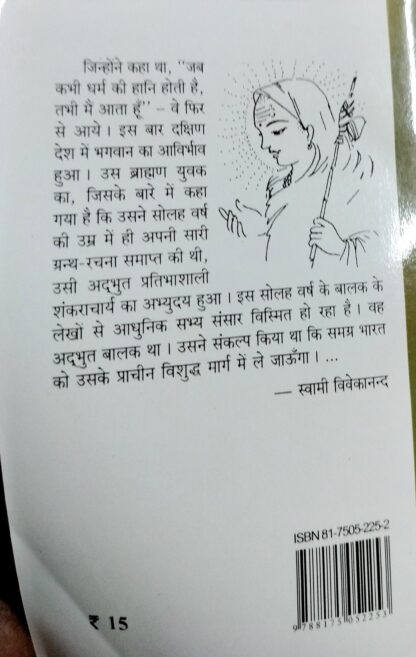 जिन्होंने कहा था, “जब
कभी धर्म की हानि होती है,
तभी मैं आता हूँ” – वे फिर
से आये। इस बार दक्षिण
देश में भगवान का आविर्भाव
हुआ। उस ब्राह्मण युवक
का, जिसके बारे में कहा
गया है कि उसने सोलह वर्ष
की उम्र में ही अपनी सारी
ग्रन्थ-रचना समाप्त की थी,
उसी अद्भुत प्रतिभाशाली
शंकराचार्य का अभ्युदय हुआ। इस सोलह वर्ष के बालक के
लेखों से आधुनिक सभ्य संसार विस्मित हो रहा है। वह
अद्भुत बालक था। उसने संकल्प किया था कि समग्र भारत
को उसके प्राचीन विशुद्ध मार्ग में ले जाऊँगा। ...
— स्वामी विवेकानन्द
ISBN 81-7505-225-2
9 788175 052253
₹ 15